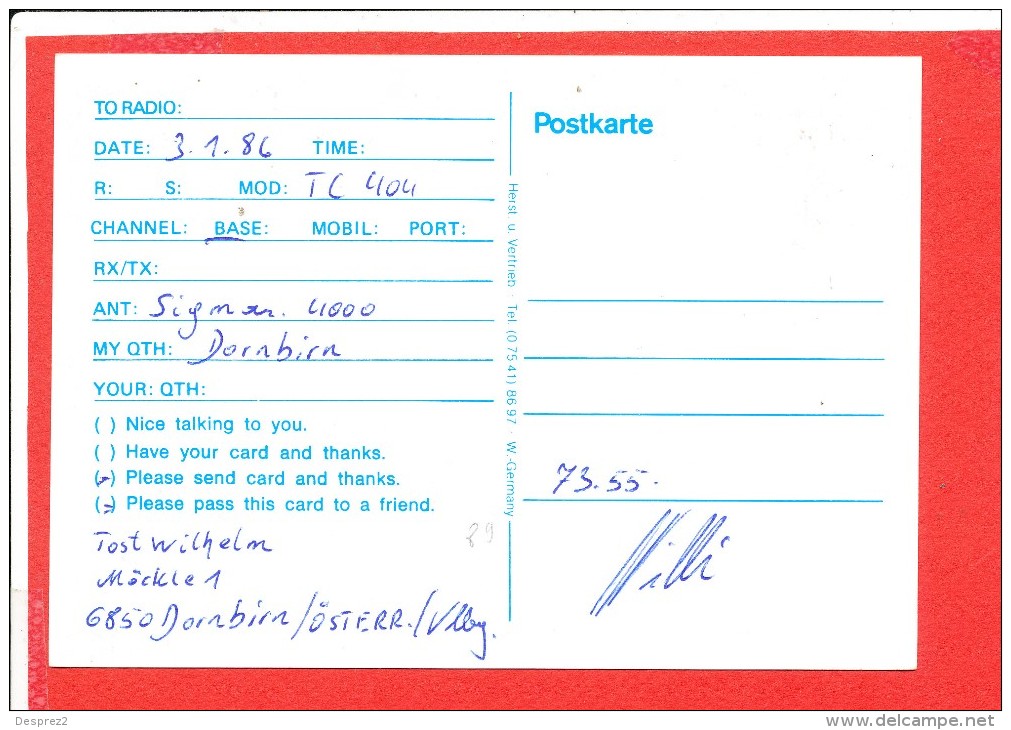 TO RADIO:
DATE: 3.1.86 TIME:
R: S: MOD: TC 404
CHANNEL: BASE: MOBIL: PORT:
RX/TX:
ANT: 4000
MY QTH: Dornbirn
YOUR: QTH:
( ) Nice talking to you.
( ) Have your card and thanks.
( ) Please send card and thanks.
( ) Please pass this card to a friend.
Tost Wilhelm
Möckle 1
6850 Dornbirn/ÖSTERR./Vlbg.
89
Herst. u. Vertrieb · Tel. (0 75 41) 86 97 · W.-Germany
Postkarte
73.55.
Willi
Desprez2
www.delcampe.net